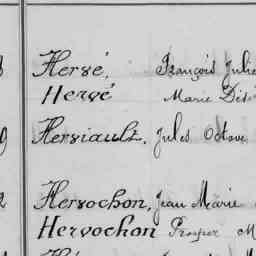 Hervé, François Julie
Hervé Marie Dés
Herviault, Jules Octave
Hervochon, Jean Marie
Hervochon Prosper M